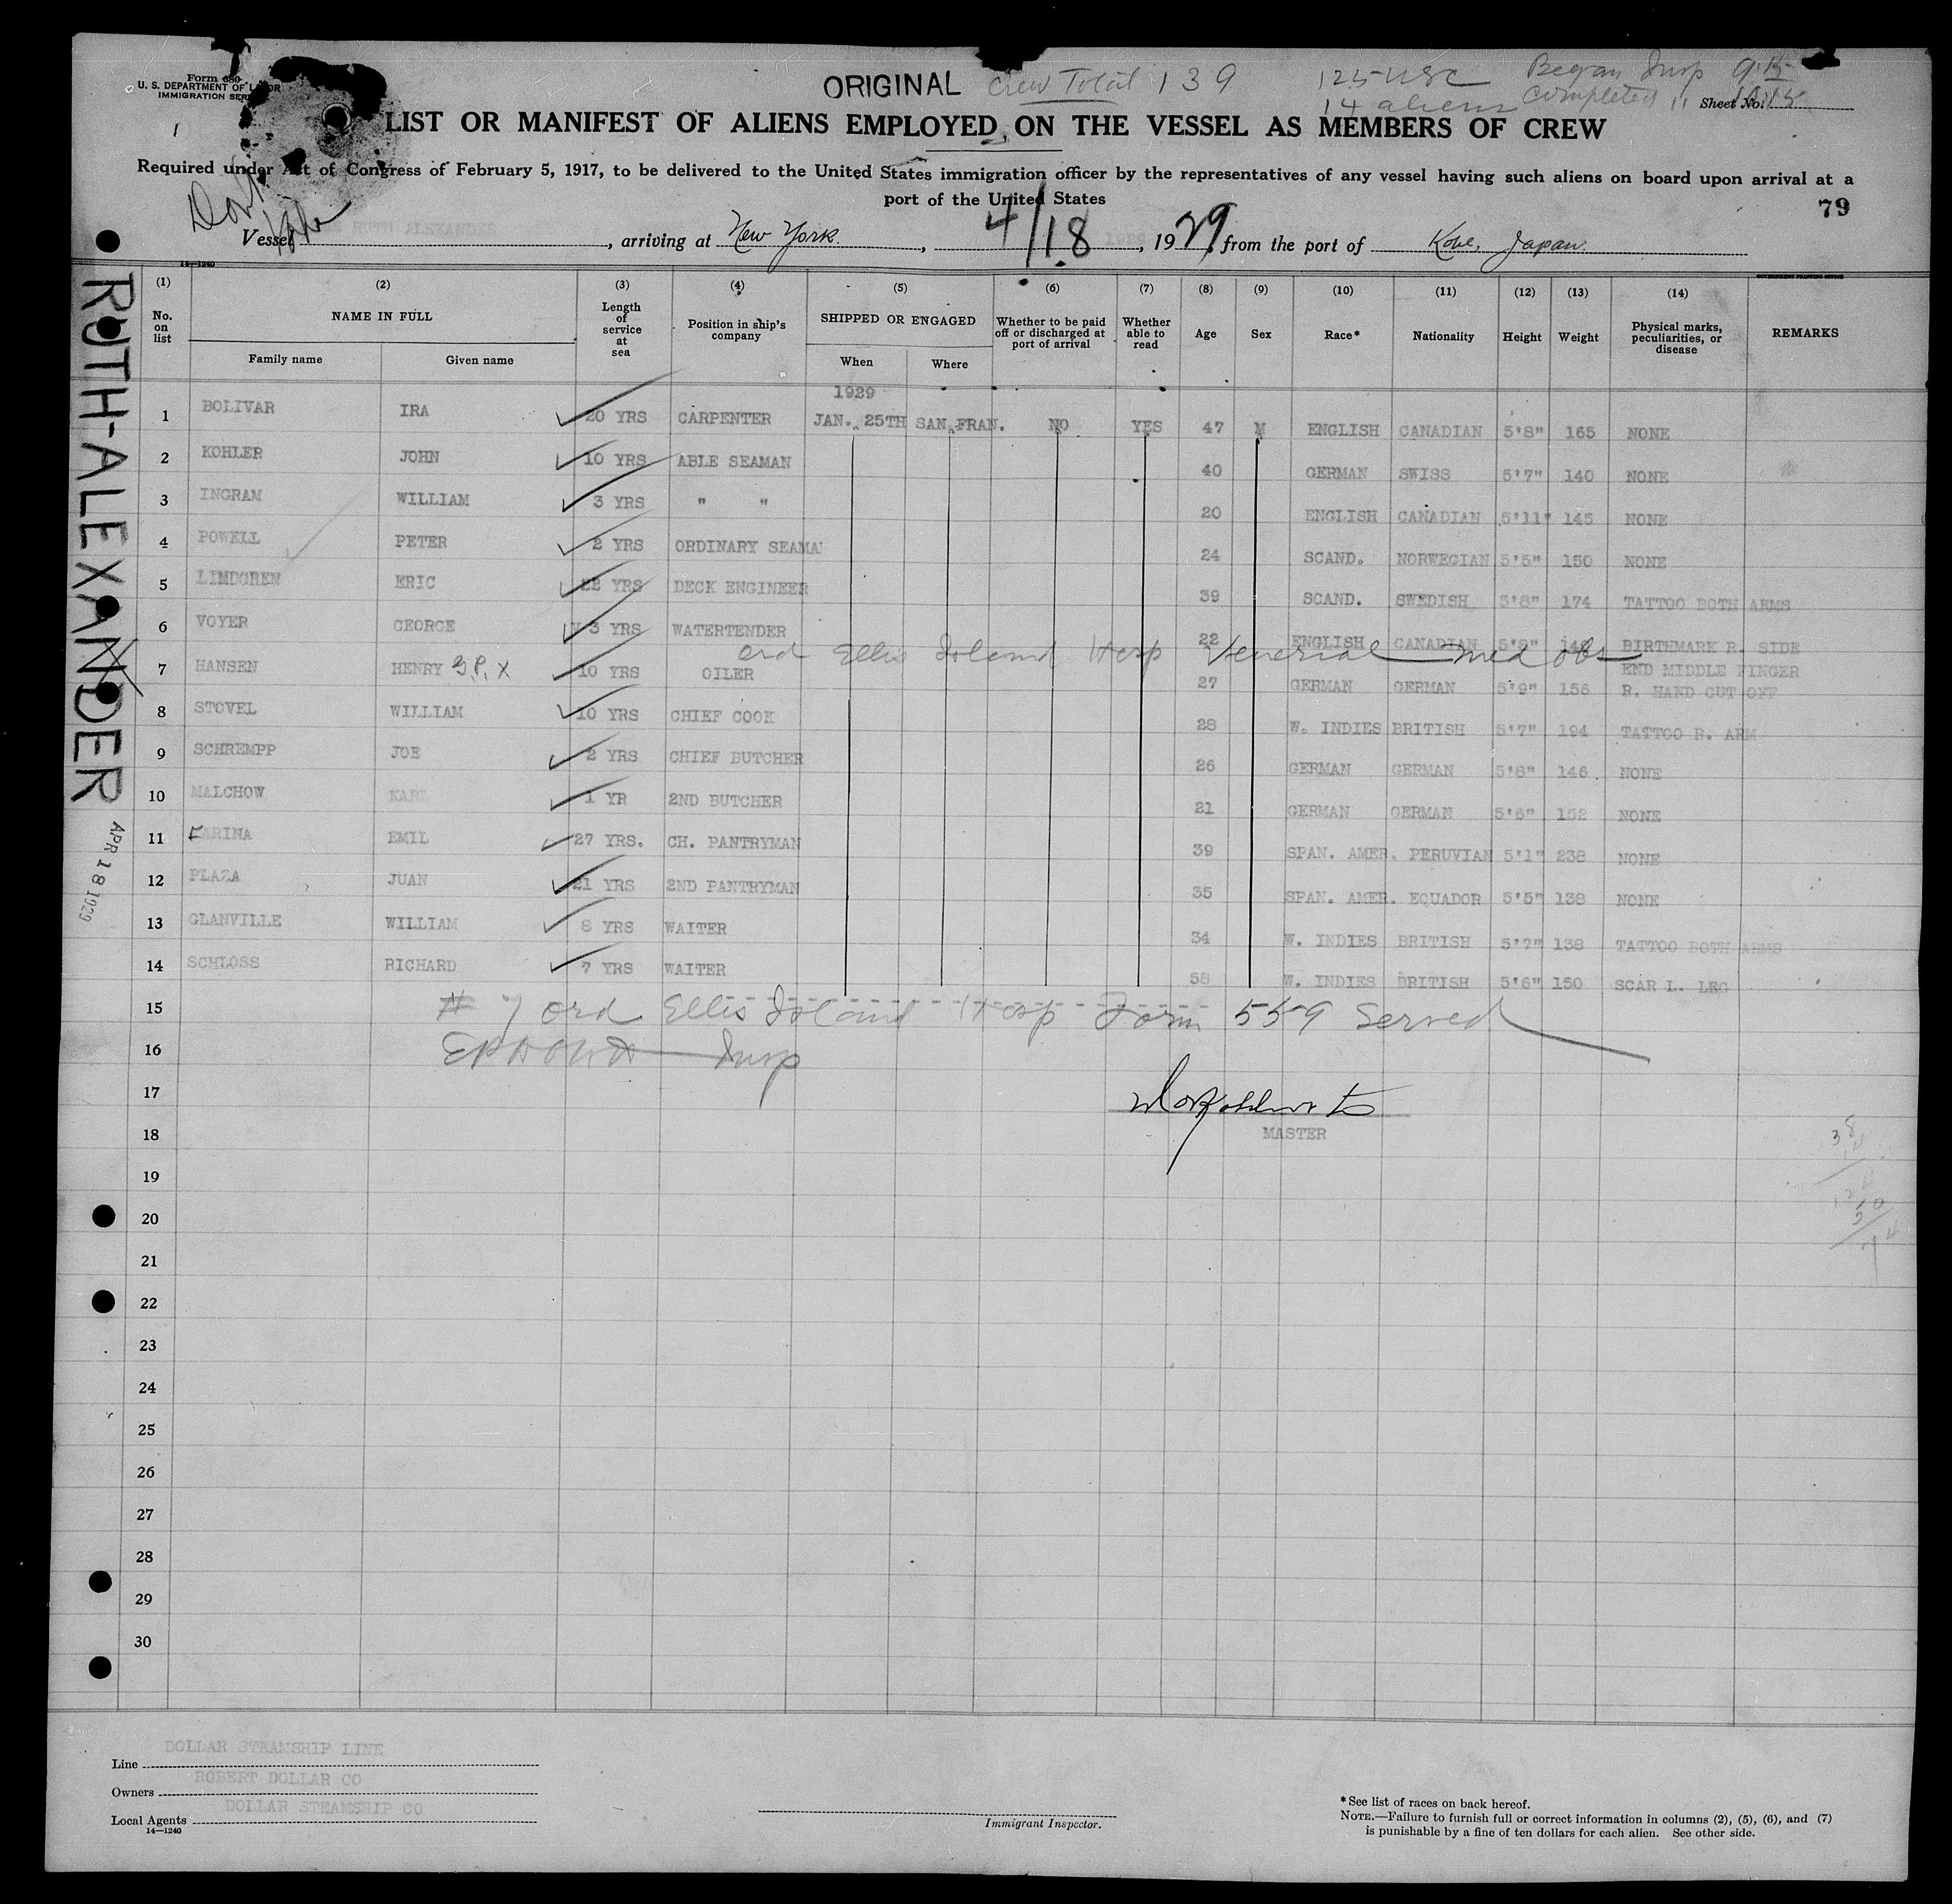 Form 680
U. S. DEPARTMENT OF LABOR
IMMIGRATION SER
ORIGINAL Crew Total 139
125 USC
14 aliens
Began Insp 9.15
Completed
Sheet No.
1
LIST OR MANIFEST OF ALIENS EMPLOYED ON THE VESSEL AS MEMBERS OF CREW
Required under Act of Congress of February 5, 1917, to be delivered to the United States immigration officer by the representatives of any vessel having such aliens on board upon arrival at a
port of the United States
79
Vessel SS RUTH ALEXANDER, arriving at New York, 4/18, 1929, from the port of Kobe, Japan.
14—1240
GOVERNMENT PRINTING OFFICE
RUTH-ALEXANDER
APR 18 1929
(1) (2) (3) (4) (5) (6) (7) (8) (9) (10) (11) (12) (13) (14)
No. on list NAME IN FULL Length of service at sea Position in ship's company SHIPPED OR ENGAGED Whether to be paid off or discharged at port of arrival Whether able to read Age Sex Race* Nationality Height Weight Physical marks, peculiarities, or disease REMARKS
Family name Given name When Where
1929
1 BOLIVAR IRA 20 YRS CARPENTER JAN. 25TH SAN FRAN. NO YES 47 M ENGLISH CANADIAN 5'8" 165 NONE
2 KOHLER JOHN 10 YRS ABLE SEAMAN 40 GERMAN SWISS 5'7" 140 NONE
3 INGRAM WILLIAM 3 YRS " " 20 ENGLISH CANADIAN 5'11" 145 NONE
4 POWELL PETER 2 YRS ORDINARY SEAMA 24 SCAND. NORWEGIAN 5'5" 150 NONE
5 LIMDGREN ERIC 22 YRS DECK ENGINEER 39 SCAND. SWEDISH 5'8" 174 TATTOO BOTH ARMS
6 VOYER GEORGE 3 YRS WATERTENDER 22 ENGLISH CANADIAN 5'8" BIRTHMARK R. SIDE
ord Ellis Island Hosp Venerial med obs
7 HANSEN HENRY G.P. X 10 YRS OILER 27 GERMAN GERMAN 5'9" 156 END MIDDLE FINGER R. HAND CUT OFF
8 STOVEL WILLIAM 10 YRS CHIEF COOK 28 W. INDIES BRITISH 5'7" 194 TATTOO R. ARM
9 SCHREMPP JOE 2 YRS CHIEF BUTCHER 26 GERMAN GERMAN 5'8" 146 NONE
10 MALCHOW KARL 1 YR 2ND BUTCHER 21 GERMAN GERMAN 5'6" 152 NONE
11 FARINA EMIL 27 YRS. CH. PANTRYMAN 39 SPAN. AMER. PERUVIAN 5'1" 238 NONE
12 PLAZA JUAN 21 YRS 2ND PANTRYMAN 35 SPAN. AMER. EQUADOR 5'5" 138 NONE
13 GLANVILLE WILLIAM 8 YRS WAITER 34 W. INDIES BRITISH 5'7" 138 TATTOO BOTH ARMS
14 SCHLOSS RICHARD 7 YRS WAITER 58 W. INDIES BRITISH 5'6" 150 SCAR L. LEG
15 # 7 ord Ellis Island Hosp Form 559 Served
16 Insp
17
18 MASTER
19
20
21
22
23
24
25
26
27
28
29
30
Line DOLLAR STEAMSHIP LINE
Owners ROBERT DOLLAR CO
Local Agents DOLLAR STEAMSHIP CO
14—1240
Immigrant Inspector.
*See list of races on back hereof.
NOTE.—Failure to furnish full or correct information in columns (2), (5), (6), and (7)
is punishable by a fine of ten dollars for each alien. See other side.